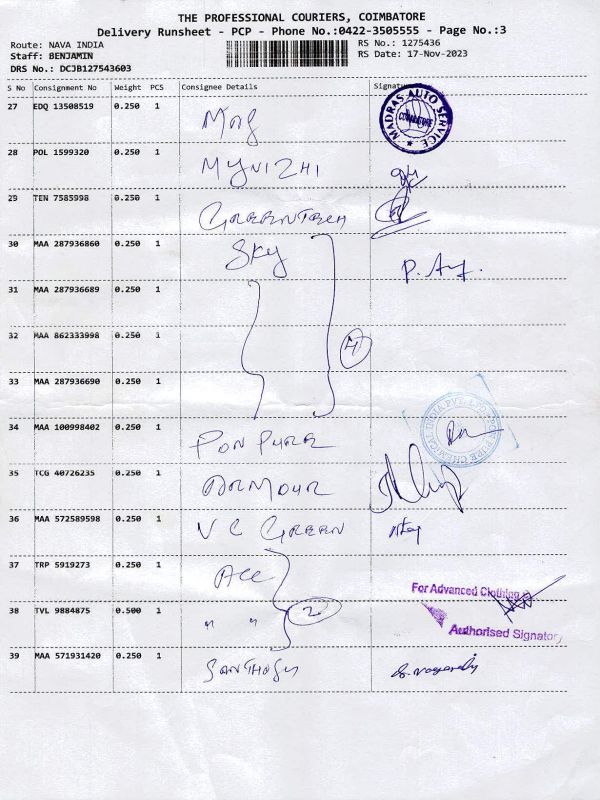 THE PROFESSIONAL COURIERS, COIMBATORE
Delivery Runsheet - PCP - Phone No.:0422-3505555 - Page No.:3
Route: NAVA INDIA
RS No.: 1275436
Staff: BENJAMIN
RS Date: 17-Nov-2023
DRS No.: DCJB127543603
S No Consignment No Weight PCS Consignee Details Signature
27 EDQ 13508519 0.250 1
MADRAS AUTO SERVICE
COIMBATORE
28 POL 1599320 0.250 1 MYVIZHI
29 TEN 7585998 0.250 1 GREENTECH
30 MAA 287936860 0.250 1 SKY
31 MAA 287936689 0.250 1
32 MAA 862333998 0.250 1
4
33 MAA 287936690 0.250 1
34 MAA 100998402 0.250 1 PON PURE
PON PURE CHEMICAL INDIA PVT. LTD.
35 TCG 40726235 0.250 1 ARMOUR
36 MAA 572589598 0.250 1 V C GREEN
37 TRP 5919273 0.250 1 ACC
For Advanced Clothing
38 TVL 9884875 0.500 1 " " 2
Authorised Signatory
39 MAA 571931420 0.250 1 SANTHOSH